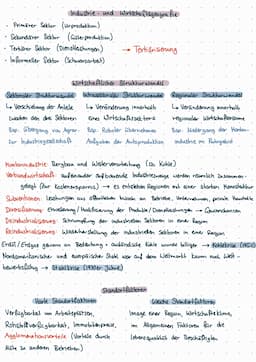 Industrie- und Wirtschaftsgeografie
- Primärer Sektor (Urproduktion)
- Sekundärer Sektor (Güterproduktion)
- Tertiärer Sektor (Dienstleistungen) → Tertiärisierung
- Informeller Sektor (Schwarzarbeit)
Wirtschaftlicher Strukturwandel
Sektoraler Strukturwandel
↳ Verschiebung der Anteile
zwischen den drei Sektoren
Bsp. Übergang von Agrar-
zur Industriegesellschaft
Intrasektoraler Strukturwandel
↳ Veränderung innerhalb
eines Wirtschaftssektors
Bsp. Roboter übernehmen
Aufgaben der Autoproduktion
Regionaler Strukturwandel
↳ Veränderung innerhalb
regionaler Wirtschaftsräume
Bsp. Niedergang der Montan-
industrie im Ruhrgebiet
Montanindustrie: Bergbau und Weiterverarbeitung (Bsp. Kohle)
Verbundwirtschaft: aufeinander aufbauende Industriezweige werden räumlich zusammen-
gelegt (für Kostenersparnis) → es entstehen Regionen mit einer starken Monostruktur
Subventionen: Leistungen aus öffentlichen Mitteln an Betriebe, Unternehmen, private Haushalte
Diversifizierung: der Produkte / Dienstleistungen
Deindustrialisierung: Schrumpfung des industriellen Sektors in einer Region
Reindustrialisierung: Wiederherstellung des industriellen Sektors in einer Region
Erdöl / Erdgas gewann an Bedeutung + ausländische Kohle wurde billiger → Kohlekrise
Nordamerikanischer und europäischer Stahl war auf dem Weltmarkt kaum noch Wett-
bewerbsfähig → Stahlkrise (1970er Jahre)
Standortfaktoren
Harte Standortfaktoren
Verfügbarkeit von Arbeitskräften,
Rohstoffverfügbarkeit, Immobilienpreise,
Agglomerationsvorteile (Vorteile durch
Nähe zu anderen Betrieben)
Weiche Standortfaktoren
Image einer Region, Wirtschaftsklima,
im Allgemeinen Faktoren für die
Lebensqualität der Beschäftigten